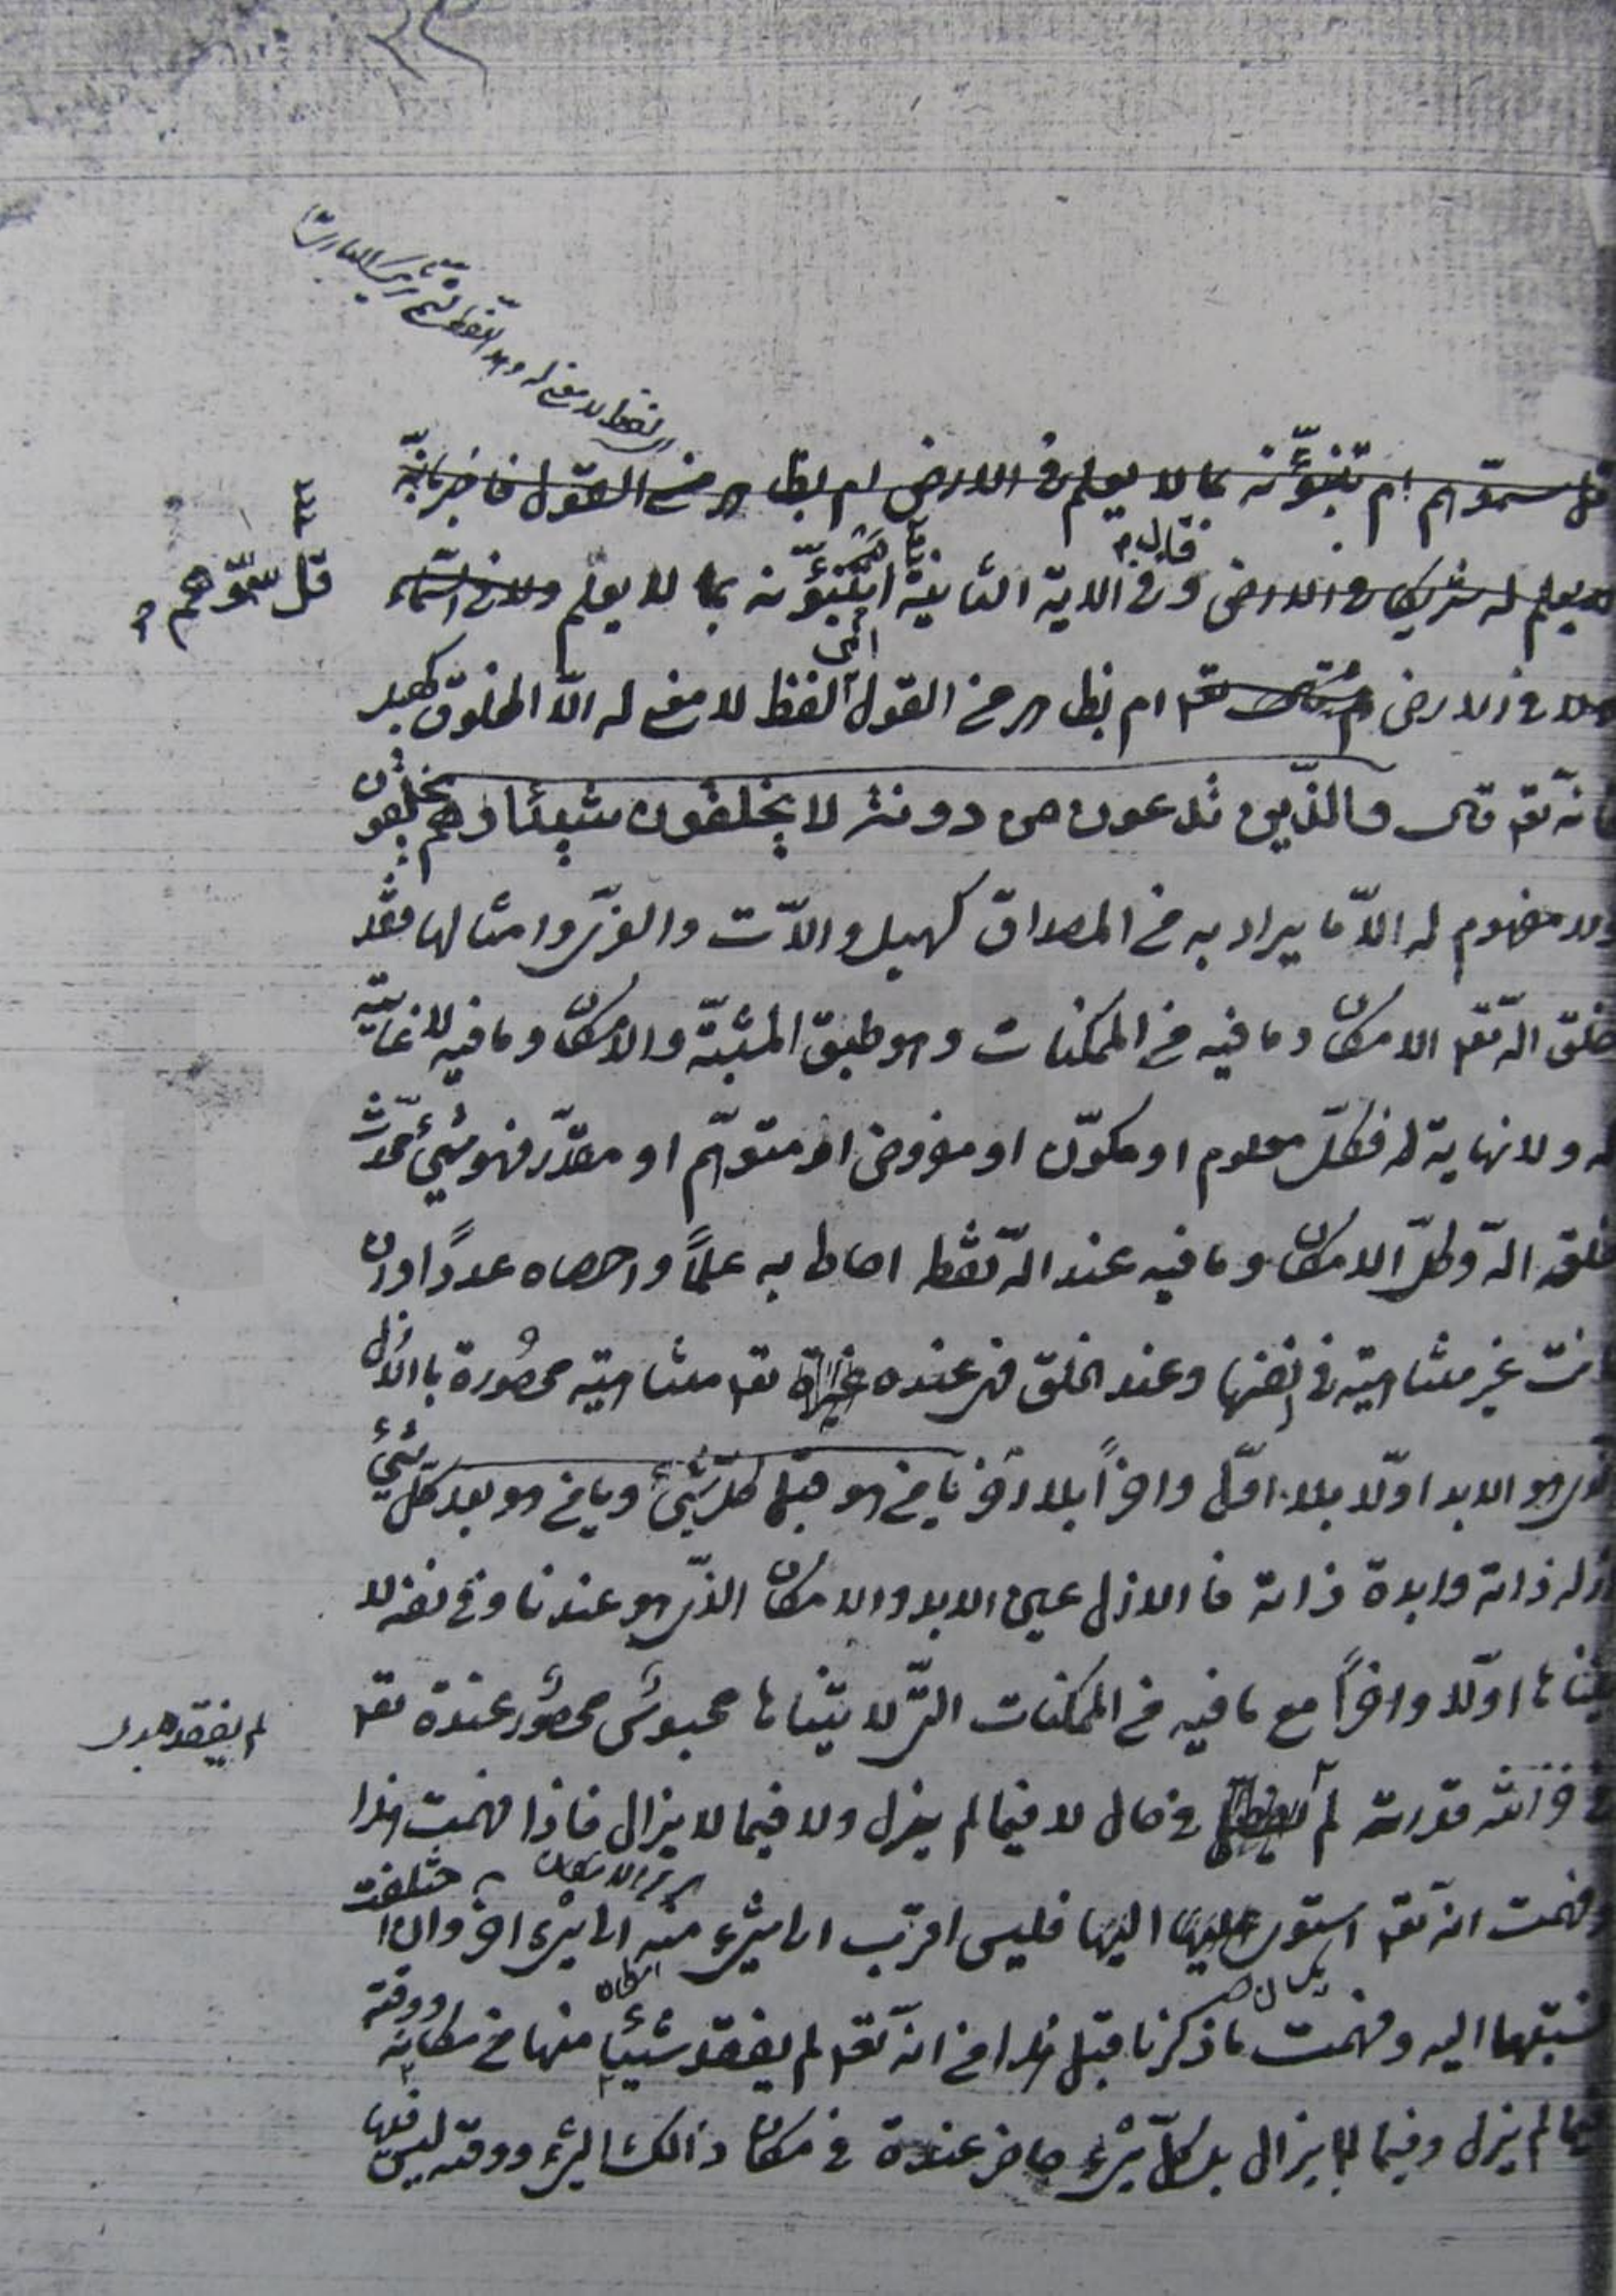 قل سمّوهم ام تنبؤنه بما لا يعلم فى الارض ام بظاهر من القول فاخبر بانّه
لا يعلم له شريك فى الارض وفى الاية الثانية اتنبؤنه بما لا يعلم ولا فى السماء
قل سمّوهم
ولا فى الارض ام بظاهر من القول الفظ لا معنى له الّا المخلوق كهبل
فانه تعه قال والذين تدعون من دونه لا يخلقون شيئا وهم يخلقون
ولا مفهوم له الّا ما يراد به من المصداق كهبل والات والعزّى وامثالها فقد
خلق الله تعه الامكان وما فيه من الممكنات وهو طبق المشيّة والامكان وما فيه لا غاية
له ولا نهاية له فكلّ معلوم او مكوّن او مفروض او متوهّم او مقدّر فهو شيئ محدث
خلقه الله وكلّ الامكان وما فيه عند الله نقطه احاط به علماً واحصاه عدداً وان
كانت غير متناهية فى نفسها وعند الخلق فهى عنده تعه متناهية محصورة باالازل
الذى هو الابد اوّلا بلا اوّل واخراً بلا اخر يا من هو قبل كلّ شيئ ويا من هو بعد كلّ شيئ
ازله ذاته وابده ذاته فاالازل عين الابد والامكان الذّى هو عندنا وفى نفسه لا
يتناها اوّلا واخراً مع ما فيه من الممكنات التّى لا يتناها محبوس محصور عنده تعه
فى خزائنه قدرته لم فى حال لا فيما لم يزل ولا فيما لا يزال فاذا فهمت هذا
لم يفقدها
وفهمت انه تعه استوى اليها فليس اقرب الى شىء منه الى شىء اخر وان اختلفت
نسبتها اليه وفهمت ما ذكرنا قبل هذا من انّه تعه لم يفقد شيئا منها من مكانه ووقته
فيما لم يزل وفيما لا يزال بل كلّ شىء حاضر عنده فى مكان ذالك الشىء ووقته ليس فيها